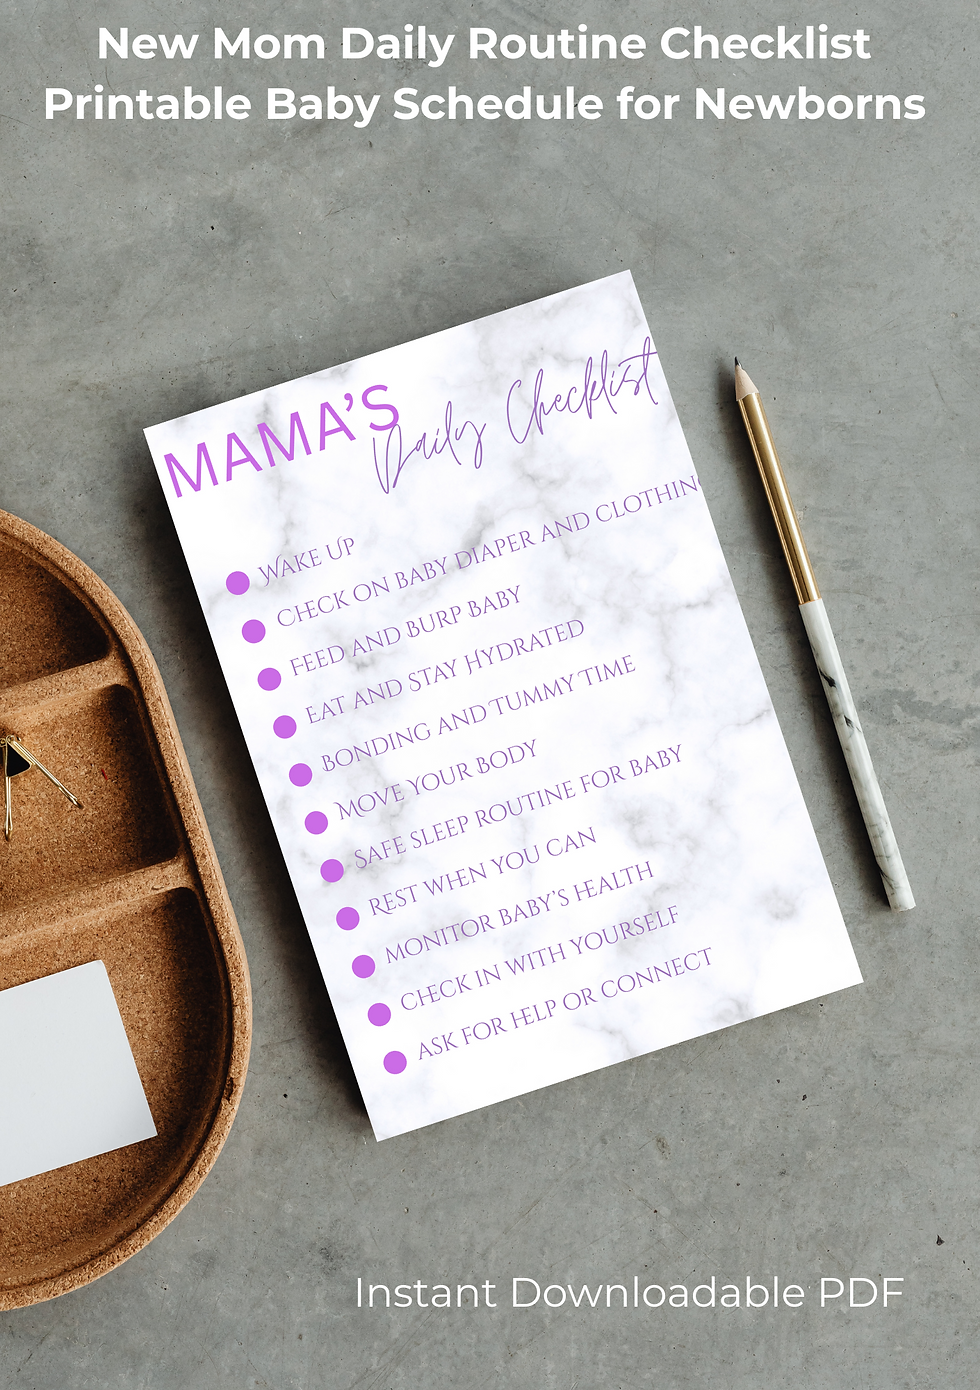 New Mom Daily Routine Checklist
Printable Baby Schedule for Newborns
MAMA'S
Daily Checklist
WAKE UP
CHECK ON BABY DIAPER AND CLOTHING
FEED AND BURP BABY
EAT AND STAY HYDRATED
BONDING AND TUMMY TIME
MOVE YOUR BODY
SAFE SLEEP ROUTINE FOR BABY
REST WHEN YOU CAN
MONITOR BABY'S HEALTH
CHECK IN WITH YOURSELF
ASK FOR HELP OR CONNECT
Instant Downloadable PDF